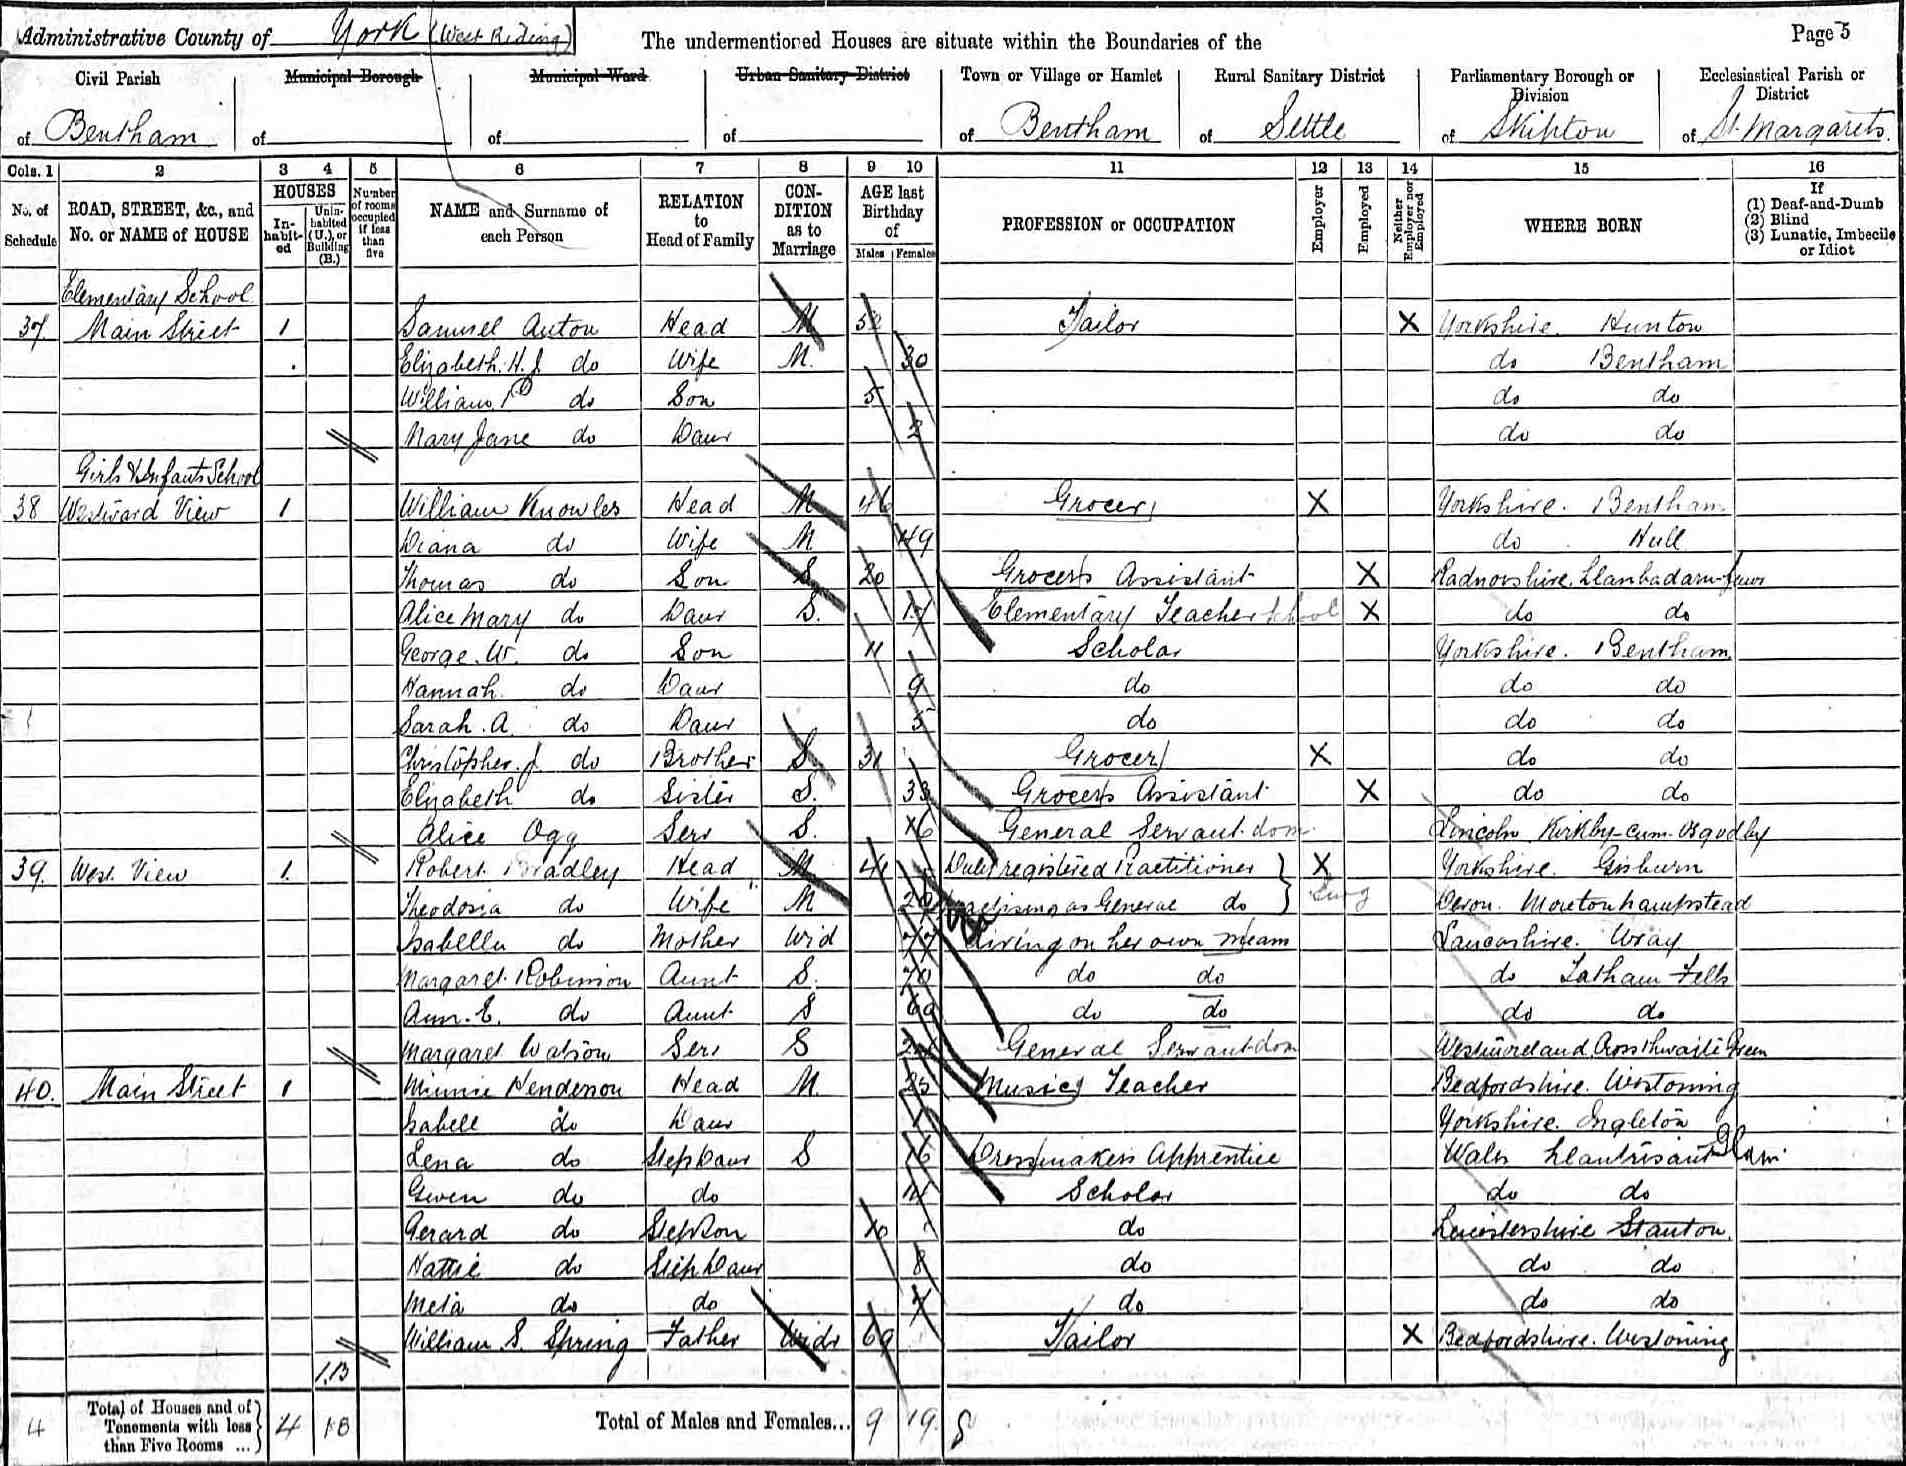 Administrative County of York (West Riding)
The undermentioned Houses are situate within the Boundaries of the
Page 5
Civil Parish of Bentham
Municipal Borough of
Municipal Ward of
Urban Sanitary District of
Town or Village or Hamlet of Bentham
Rural Sanitary District of Settle
Parliamentary Borough or Division of Skipton
Ecclesiastical Parish or District of St. Margarets.
Cols. 1 2 3 4 5 6 7 8 9 10 11 12 13 14 15 16
No. of Schedule
ROAD, STREET, &c., and No. or NAME of HOUSE
HOUSES
Inhabited
Uninhabited (U.), or Building (B.)
Number of rooms occupied if less than five
NAME and Surname of each Person
RELATION to Head of Family
CONDITION as to Marriage
AGE last Birthday of
Males Females
PROFESSION or OCCUPATION
Employer
Employed
Neither Employer nor Employed
WHERE BORN
If
(1) Deaf-and-Dumb
(2) Blind
(3) Lunatic, Imbecile or Idiot
Elementary School
37. Main Street 1 Samuel Auton Head M 52 Tailor X Yorkshire. Hunton
Elizabeth. H. J. do Wife M. 30 do Bentham
William P do Son 5 do do
Mary Jane do Daur 2 do do
Girls & Infants School
38 Westward View 1 William Knowles Head M 46 Grocer X Yorkshire. Bentham
Diana do Wife M 49 do Hull
Thomas do Son S 20 Grocers Assistant X Radnorshire. Llanbadarn-fawr
Alice Mary do Daur S. 17 Elementary Teacher School X do do
George. W. do Son 11 Scholar Yorkshire. Bentham
Hannah. do Daur 9 do do do
Sarah. A. do Daur 5 do do do
Christopher. J. do Brother S 31 Grocer X do do
Elizabeth do Sister S. 33 Grocers Assistant X do do
Alice Ogg Serv S. 16 General Servant. dom. Lincoln Kirkby-cum-Osgodby
39. West View 1. Robert Bradley Head M 41 Duly registered Practitioner X Yorkshire. Gisburn
Theodosia do Wife M practising as General do Devon. Moretonhampstead
Isabella do Mother Wid 77 Living on her own means Lancashire. Wray
Margaret Robinson Aunt S. 70 do do do Tatham Fells
Ann. E. do Aunt S do do do do
Margaret Watson Serv S General Servant dom Westmoreland Crossthwaite Green
40. Main Street 1 Minnie Henderson Head M. 25 Music Teacher Bedfordshire. Westoning
Isabell do Daur 1 Yorkshire. Ingleton
Lena do Step Daur S 16 Dressmakers Apprentice Wales Llantrisant Glam.
Gwen do do 14 Scholar do do
Gerard do Stepson 10 do Leicestershire Stanton.
Hattie do Step Daur 8 do do do
Meta do do 7 do do do
William. S. Spring Father Widr 69 Tailor X Bedfordshire. Westoning
1.13
4 Total of Houses and of Tenements with less than Five Rooms ... 4 Total of Males and Females... 9 19